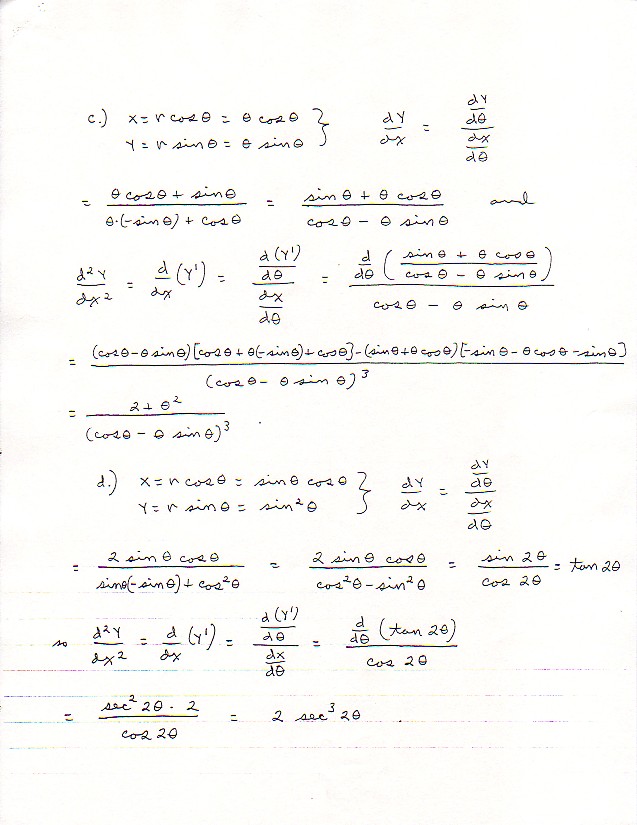 c.) x = r cosθ = θ cosθ } dy/dx = (dy/dθ)/(dx/dθ)
y = r sinθ = θ sinθ
= (θ cosθ + sinθ)/(θ·(-sinθ) + cosθ) = (sinθ + θ cosθ)/(cosθ - θ sinθ) and
d²y/dx² = d/dx (y') = (d(y')/dθ)/(dx/dθ) = (d/dθ ((sinθ + θ cosθ)/(cosθ - θ sinθ)))/(cosθ - θ sinθ)
= ((cosθ - θ sinθ)[cosθ + θ(-sinθ) + cosθ] - (sinθ + θ cosθ)[-sinθ - θ cosθ - sinθ])/(cosθ - θ sinθ)³
= (2 + θ²)/(cosθ - θ sinθ)³ .
d.) x = r cosθ = sinθ cosθ } dy/dx = (dy/dθ)/(dx/dθ)
y = r sinθ = sin²θ
= (2 sinθ cosθ)/(sinθ(-sinθ) + cos²θ) = (2 sinθ cosθ)/(cos²θ - sin²θ) = (sin 2θ)/(cos 2θ) = tan 2θ
so d²y/dx² = d/dx (y') = (d(y')/dθ)/(dx/dθ) = (d/dθ (tan 2θ))/(cos 2θ)
= (sec² 2θ · 2)/(cos 2θ) = 2 sec³ 2θ .